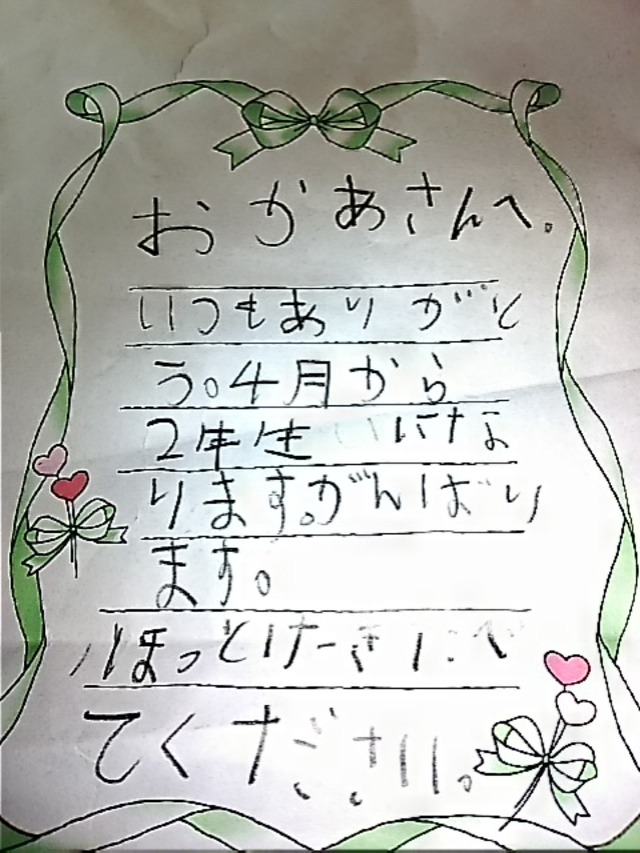 おかあさんへ。
いつもありがと
う。4月から
2年生にな
ります。がんばり
ます。
ほっとけーき
てください。